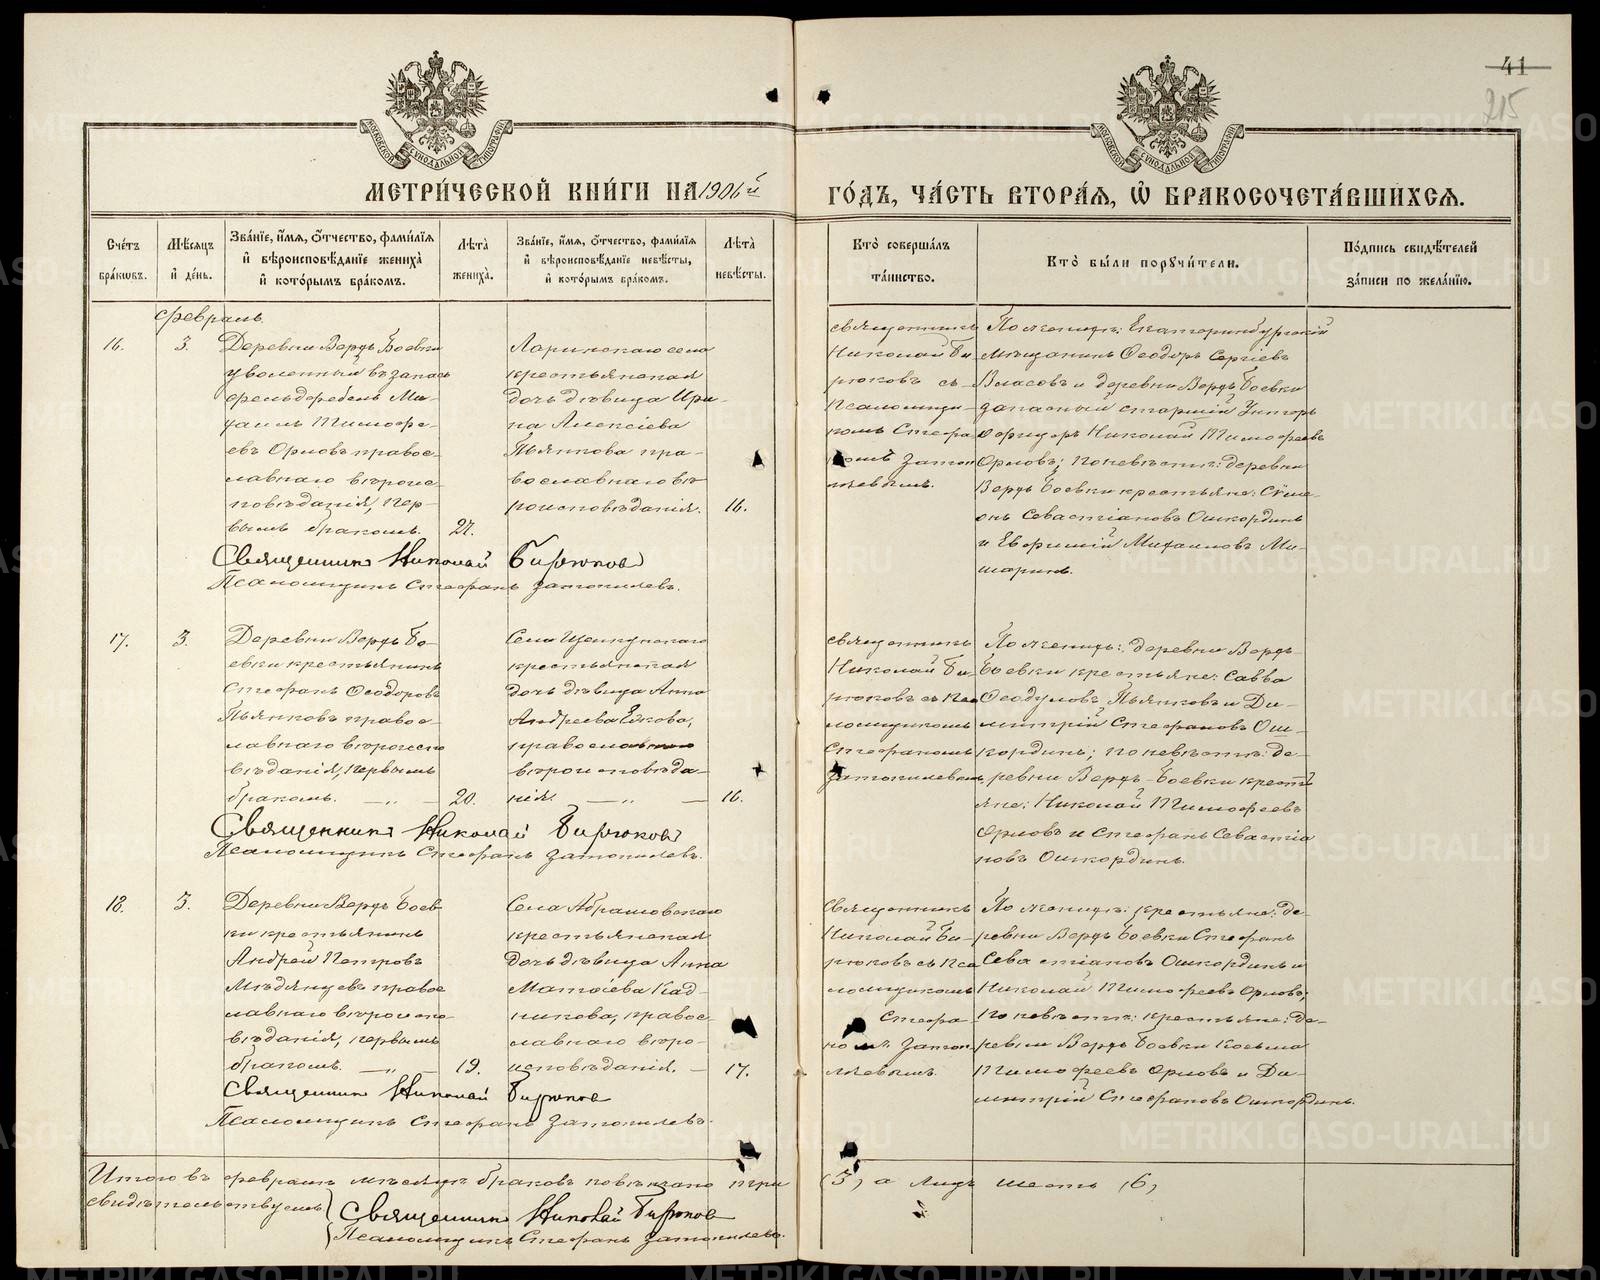 41
215
МЕТРИ́ЧЕСКОЙ КНИ́ГИ НА 1906й ГО́ДЪ, ЧА́СТЬ ВТОРА́Я, Ѡ҆ БРАКОСОЧЕТА́ВШИХСЯ.
Сче́тъ бра́кѡвъ.
Мѣ́сяцъ и҆ де́нь.
Зва́нїе, и҆́мя, ѻ҆́тчество, фамилїя и҆ вѣроисповѣ́данїе жениха̀ и҆ кото́рымъ бра́комъ.
Лѣ́та жениха̀.
Зва́нїе, и҆́мя, ѻ҆́тчество, фами́лїя и҆ вѣроисповѣ́данїе невѣ́сты, и҆ кото́рымъ бра́комъ.
Лѣ́та невѣ́сты.
Кто̀ соверша́лъ та́инство.
Кто̀ бы́ли порꙋчи́тели.
По́дпись свидѣ́телей за́писи по жела́нїю.
Февраль
16.
3.
Деревни Верхъ Боевки
уволенный въ запасъ
фельдфебель Ми-
хаилъ Тимофе-
евъ Орловъ правос-
лавнаго вѣроис-
повѣданія, пер-
вымъ бракомъ.
27.
Ларинскаго села
крестьянская
дочь дѣвица Ири-
на Алексіева
Пьянкова пра-
вославнаго вѣ-
роисповѣданія.
16.
священникъ
Николай Би-
рюковъ съ
Псаломщи-
комъ Стефа-
номъ Затоп-
ляевымъ.
По женихѣ: Екатеринбургскій
мѣщанинъ Ѳеодоръ Сергіевъ
Власовъ и деревни Верхъ Боевки
запасный старшій Унтеръ
офицеръ Николай Тимофеевъ
Орловъ; по невѣстѣ: деревни
Верхъ Боевки крестьяне: Сѵме-
онъ Севастіановъ Ошкординъ
и Евфимій Михаиловъ Ми-
шаринъ.
Священникъ Николай Бирюковъ
Псаломщикъ Стефанъ Затопляевъ.
17.
3.
Деревни Верхъ Бо-
евки крестьянинъ
Стефанъ Ѳеодоровъ
Пьянковъ правос-
лавнаго вѣроиспо
вѣданія, первымъ
бракомъ. — „ —
20.
Села Щелкунскаго
крестьянская
дочь дѣвица Анна
Андреева
православнаго
вѣроисповѣда-
нія. — „ —
16.
священникъ
Николай Би-
рюковъ съ Пса
ломщикомъ
Стефаномъ
Затопляевымъ
По женихѣ: деревни Верхъ-
Боевки крестьяне: Савва
Ѳеодуловъ Пьянковъ и Ди-
митрій Стефановъ Ош-
кординъ; по невѣстѣ: де-
ревни Верхъ-Боевки кресть
яне: Николай Тимофеевъ
Орловъ и Стефанъ Севастіа
новъ Ошкординъ.
Священникъ Николай Бирюковъ
Псаломщикъ Стефанъ Затопляевъ.
18.
3.
Деревни Верхъ Боев-
ки крестьянинъ
Андрей Петровъ
Мѣдянцевъ правос
лавнаго вѣроиспо-
вѣданія, первымъ
бракомъ. — „ —
19.
Села Абрамовскаго
крестьянская
дочь дѣвица Анна
Матѳіева Кад-
никова, правос-
лавнаго вѣро-
исповѣданія. —
17.
священникъ
Николай Би-
рюковъ съ Пса
ломщикомъ
Стефа-
номъ Затоп-
ляевымъ.
По женихѣ: крестьяне: де-
ревни Верхъ Боевки Стефанъ
Севастіановъ Ошкординъ и
Николай Тимофеевъ Орловъ;
по невѣстѣ: крестьяне: де-
ревни Верхъ Боевки Косьма
Тимофеевъ Орловъ и Ди-
митрій Стефановъ Ошкординъ.
Священникъ Николай Бирюковъ
Псаломщикъ Стефанъ Затопляевъ.
Итого въ февралѣ мѣсяцѣ браковъ повѣнчано три (3), а лицъ шесть (6)
свидѣтельствуемъ
Священникъ Николай Бирюковъ
Псаломщикъ Стефанъ Затопляевъ.
METRIKI.GASO-URAL.RU